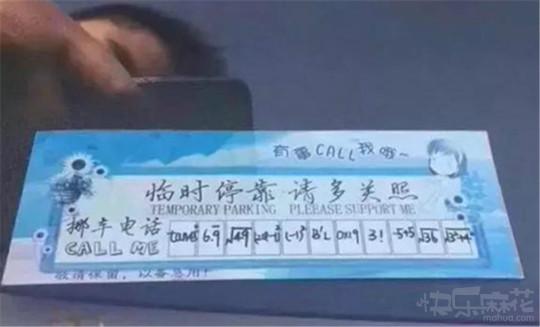 有事CALL我呀~
临时停靠 请多关照
TEMPORARY PARKING PLEEASE SUPPORT ME
挪车电话
CALL ME
6.9 √49 0x19 3! -5+5 √36
敬请保留,以备急用!
快乐麻花
mahua.com